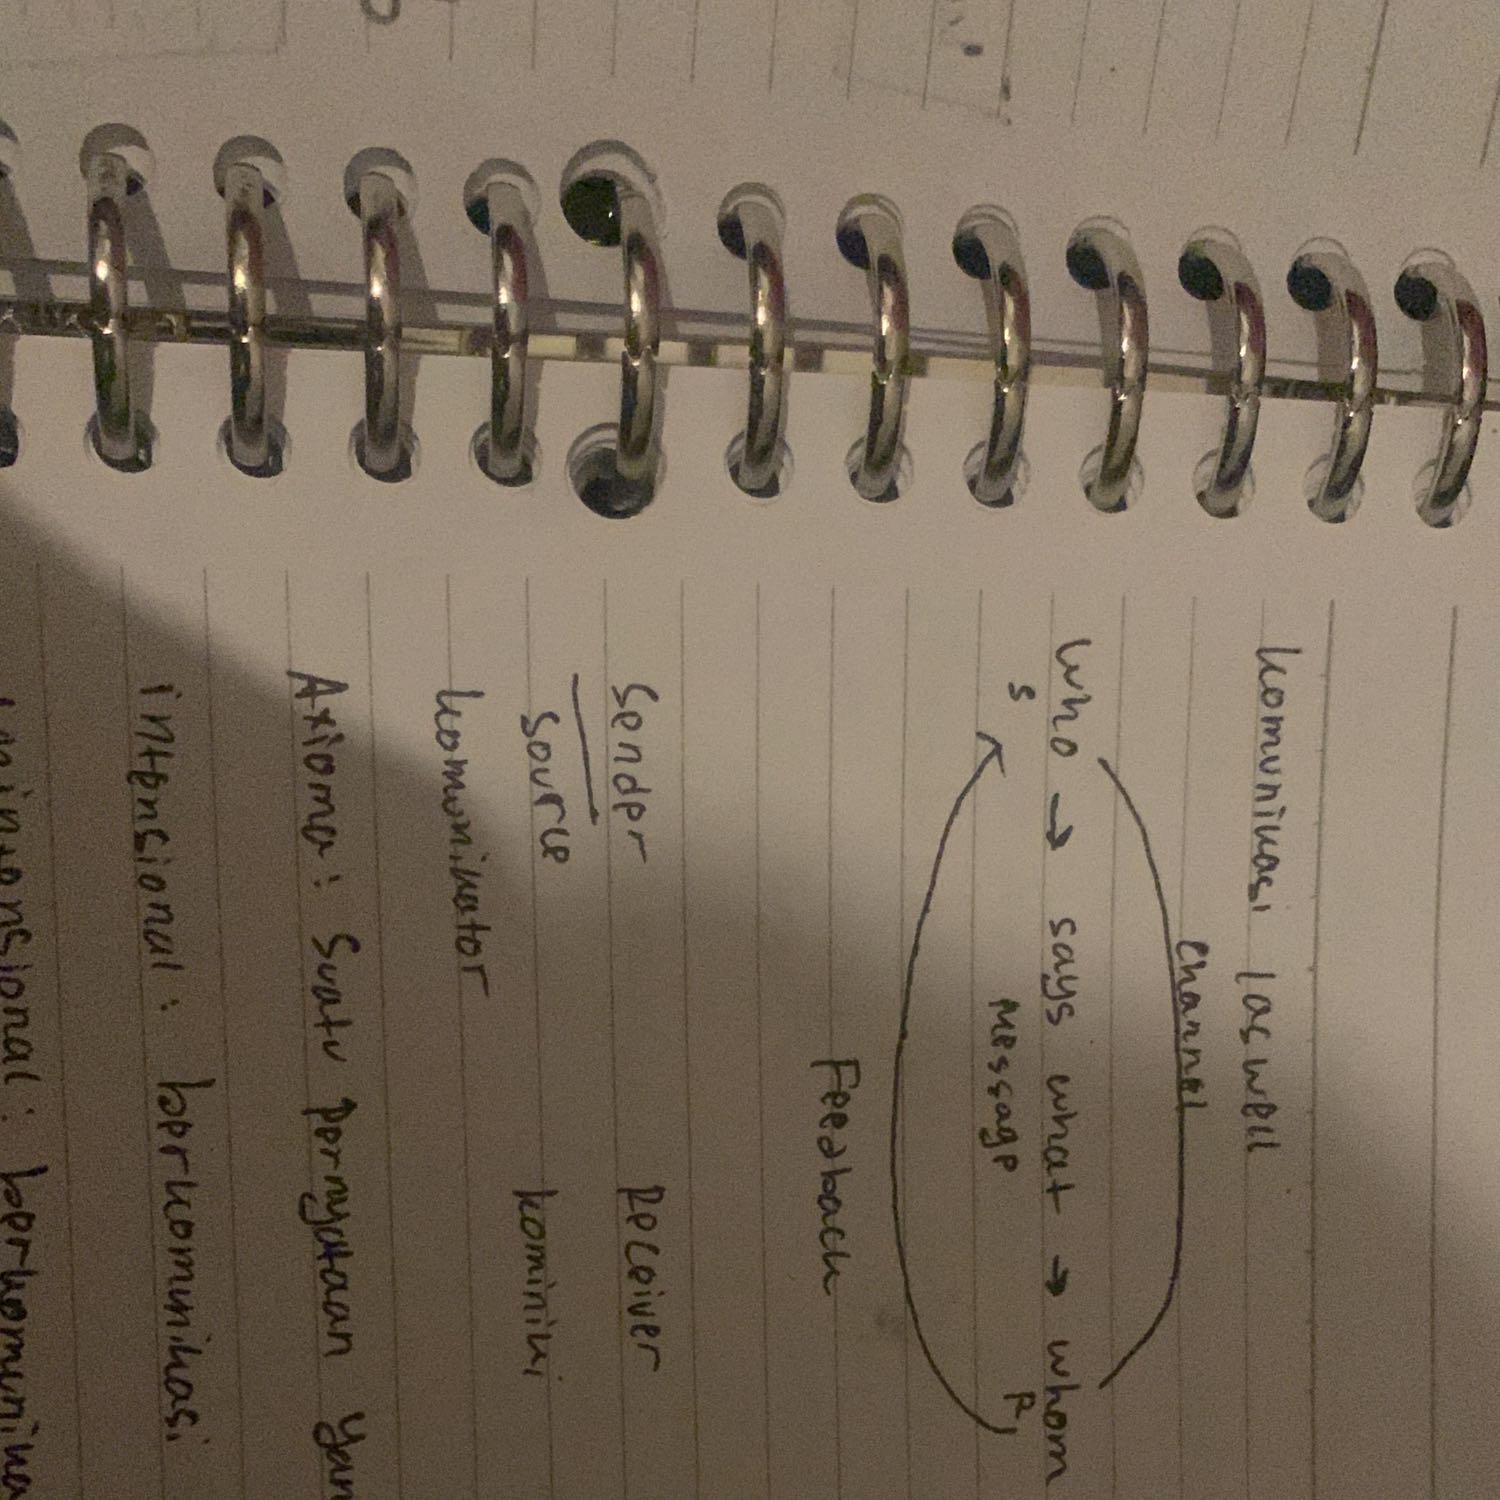 Komunikasi Laswell
Channel
Who → says what → whom
S Message R
Feedback
Sender Receiver
Source Kominiki
Komunikator
Axioma : Suatu pernyataan yan
intensional : berkomunikasi
intensional : berkomunika